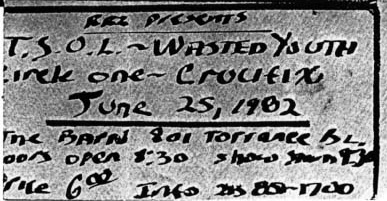 PRESENTS
T.S.O.L. ~ WASTED YOUTH
ircle one ~ CRUCIFIX
June 25, 1982
The BARN 801 TORRANCE BL.
oors open 8:30 show
rice 6.00 Info